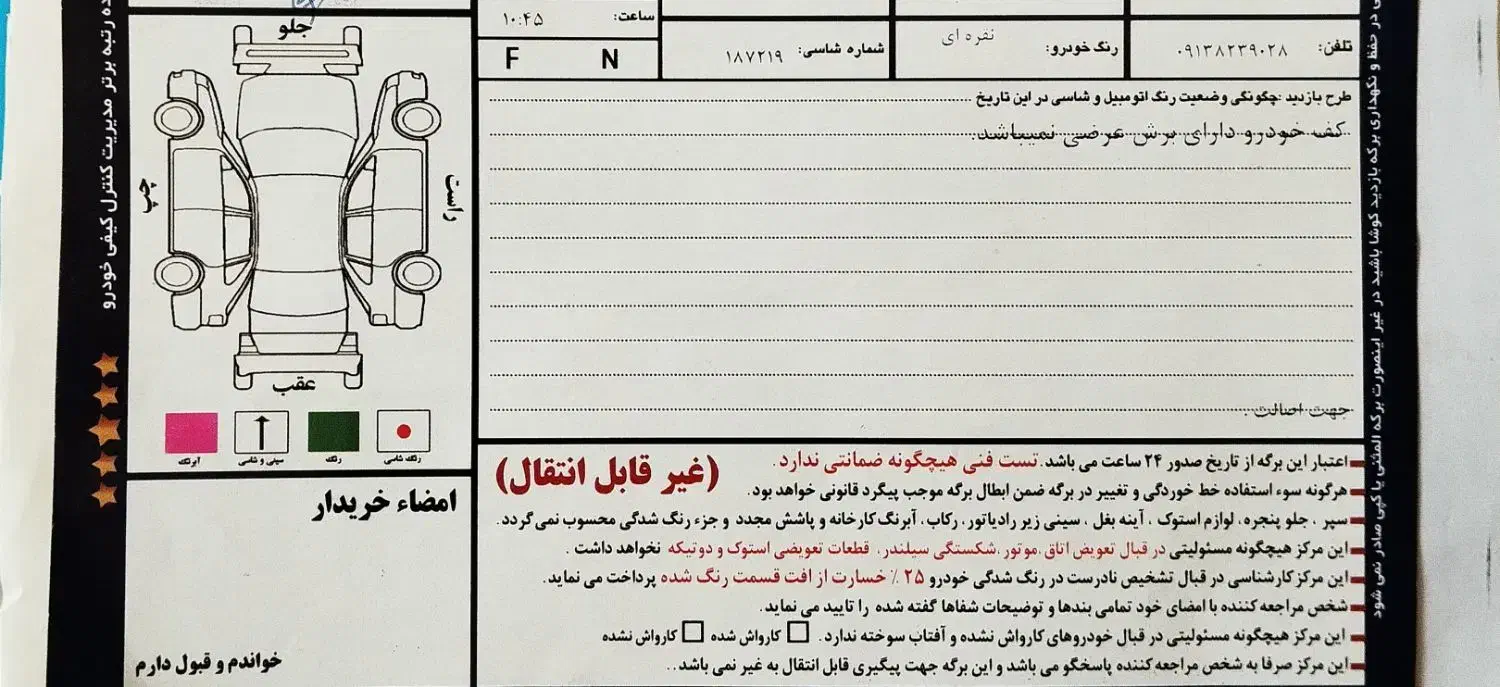 ساعت: ۱۰:۴۵
F N
شماره شاسی: ۱۸۷۲۱۹
رنگ خودرو: نقره ای
تلفن: ۰۹۱۳۸۲۳۹۰۲۸
طرح بازدید :چگونگی وضعیت رنگ اتومبیل و شاسی در این تاریخ
کف خودرو دارای برش عرضی نمیباشد.
جهت اصالت .
جلو
چپ
راست
عقب
رنگ شاسی
رنگ
سینی و شاسی
آبرنگ
امضاء خریدار
خواندم و قبول دارم
(غیر قابل انتقال)
اعتبار این برگه از تاریخ صدور ۲۴ ساعت می باشد. تست فنی هیچگونه ضمانتی ندارد.
هرگونه سوء استفاده خط خوردگی و تغییر در برگه ضمن ابطال برگه موجب پیگرد قانونی خواهد بود.
سپر ، جلو پنجره، لوازم استوک ، آینه بغل ، سینی زیر رادیاتور، رکاب، آبرنگ کارخانه و پاشش مجدد و جزء رنگ شدگی محسوب نمی گردد.
این مرکز هیچگونه مسئولیتی در قبال تعویض اتاق،موتور،شکستگی سیلندر، قطعات تعویضی استوک و دوتیکه نخواهد داشت .
این مرکز کارشناسی در قبال تشخیص نادرست در رنگ شدگی خودرو ۲۵ ٪ خسارت از افت قسمت رنگ شده پرداخت می نماید.
شخص مراجعه کننده با امضای خود تمامی بندها و توضیحات شفاها گفته شده را تایید می نماید.
این مرکز هیچگونه مسئولیتی در قبال خودروهای کارواش نشده و آفتاب سوخته ندارد. کارواش شده کارواش نشده
این مرکز صرفا به شخص مراجعه کننده پاسخگو می باشد و این برگه جهت پیگیری قابل انتقال به غیر نمی باشد..
رتبه برتر مدیریت کنترل کیفی خودرو
در حفظ و نگهداری برگه بازدید کوشا باشید در غیر اینصورت برگه المثنی یا کپی صادر نمی شود